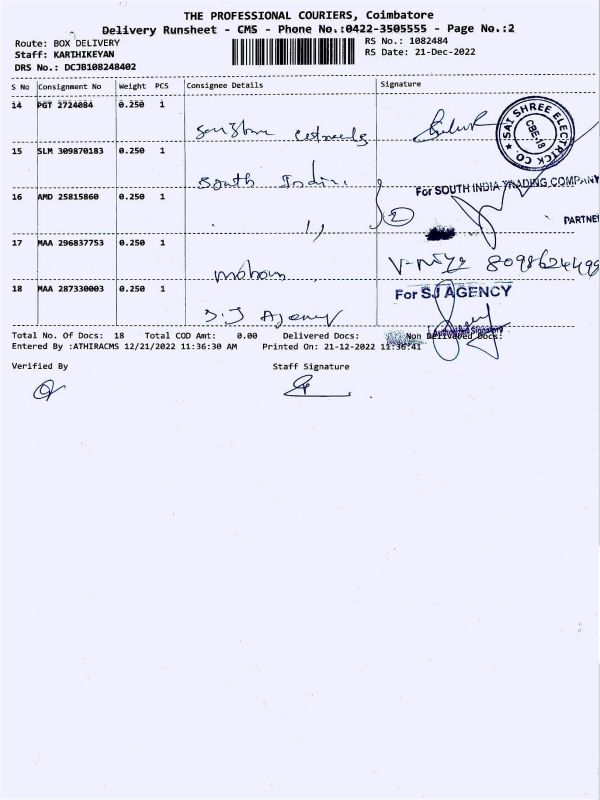 THE PROFESSIONAL COURIERS, Coimbatore
Delivery Runsheet - CMS - Phone No.:0422-3505555 - Page No.:2
Route: BOX DELIVERY
RS No.: 1082484
Staff: KARTHIKEYAN
RS Date: 21-Dec-2022
DRS No.: DCJB108248402
S No Consignment No Weight PCS Consignee Details Signature
14 PGT 2724084 0.250 1
SAI SHREE ELECTRICK CO. CBE-18
15 SLM 309870183 0.250 1
South India
For SOUTH INDIA TRADING COMPANY
16 AMD 25815860 0.250 1
2
PARTNE
17 MAA 296837753 0.250 1
8098624499
18 MAA 287330003 0.250 1
For SJ AGENCY
S.J Agency
Authorised Signatory
Total No. Of Docs: 18 Total COD Amt: 0.00 Delivered Docs: Non Delivered Docs:
Entered By :ATHIRACMS 12/21/2022 11:36:30 AM Printed On: 21-12-2022 11:36:41
Verified By Staff Signature